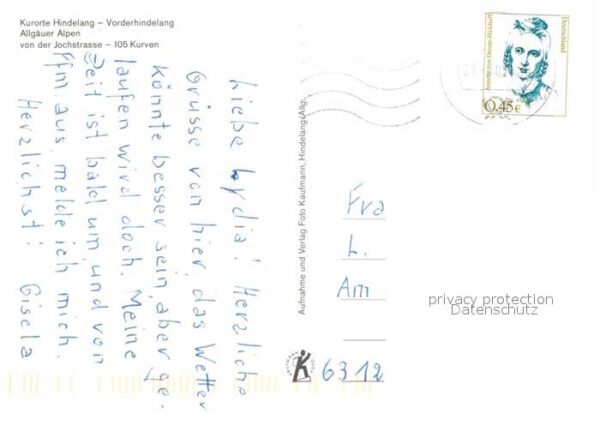 Kurorte Hindelang – Vorderhindelang
Allgäuer Alpen
von der Jochstrasse – 105 Kurven
Liebe Lydia! Herzliche
Grüsse von hier, das Wetter
könnte besser sein, aber ge-
laufen wird doch. Meine
Zeit ist bald um, und von
Ffm aus melde ich mich.
Herzlichst: Gisela
Aufnahme und Verlag Foto Kaufmann, Hindelang/Allg.
Annette von Droste-Hülshoff
Deutschland
0,45€
Fra
L.
Am
6312
privacy protection
Datenschutz